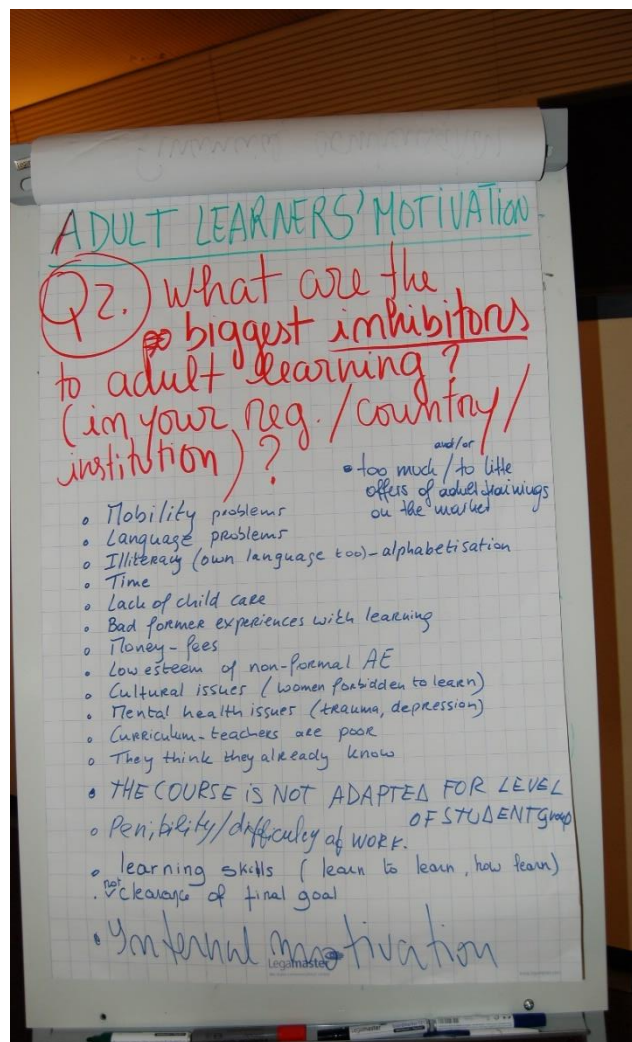 ADULT LEARNERS' MOTIVATION
Q2. What are the
biggest inhibitors
to adult learning?
(in your reg./country/
institution)?
and/or
• too much/to little
offers of adult trainings
on the market
• Mobility problems
• Language problems
• Illiteracy (own language too)-alphabetisation
• Time
• Lack of child care
• Bad former experiences with learning
• Money-fees
• Low esteem of non-formal AE
• Cultural issues (women forbidden to learn)
• Mental health issues (trauma, depression)
• Curriculum-teachers are poor
• They think they already know
• THE COURSE IS NOT ADAPTED FOR LEVEL
OF STUDENT group
• Penibility/difficulty of WORK.
• learning skills (learn to learn, how learn)
not
• clearance of final goal
• Internal motivation
Legamaster
Legamaster